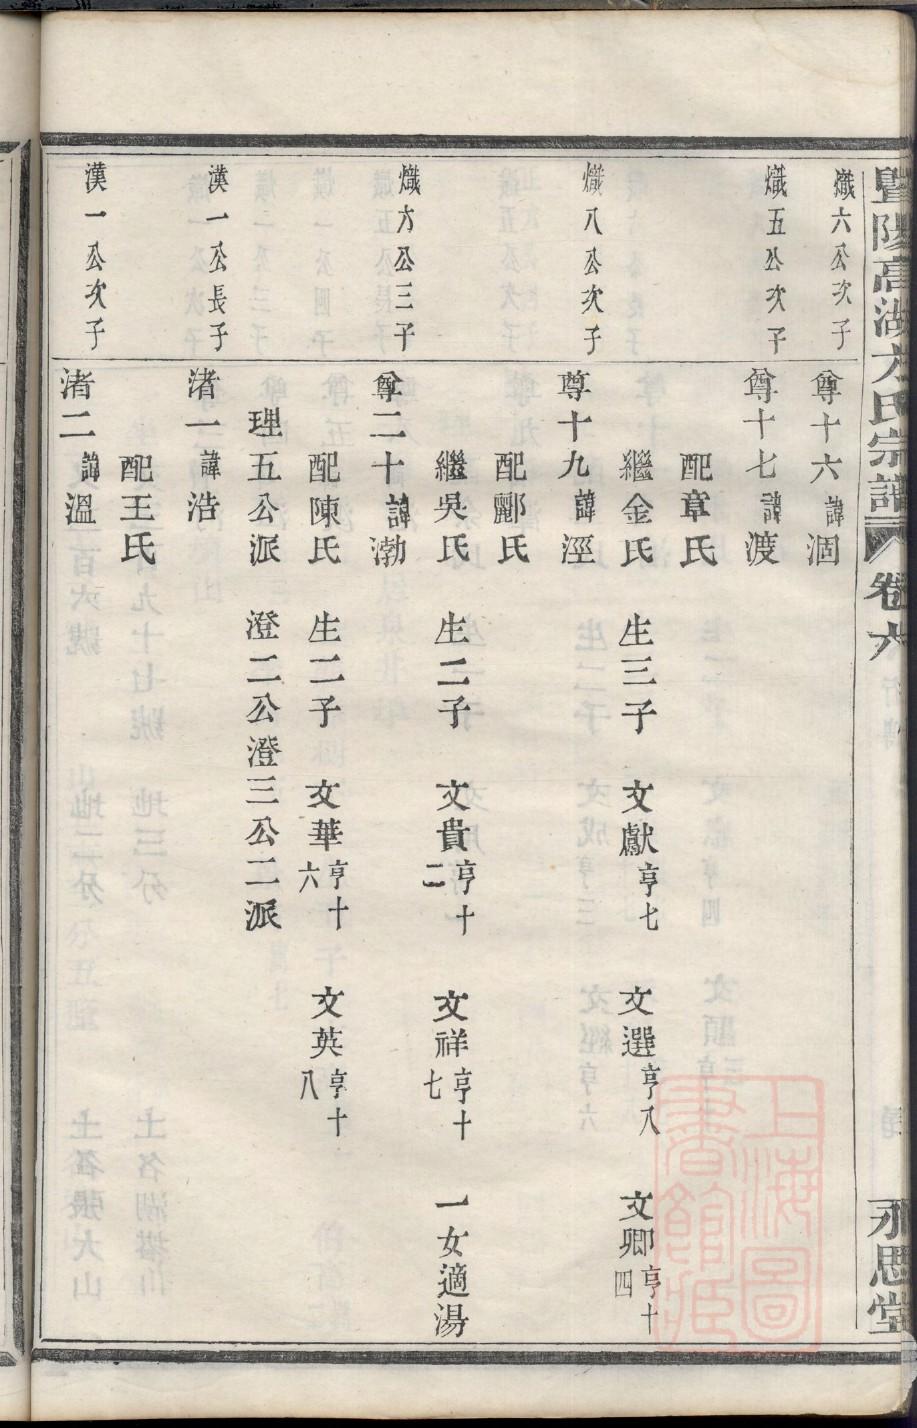 暨陽高湖方氏宗譜 卷六 永思堂
熾六公次子 尊十六諱涸
熾五公次子 尊十七諱渡
配章氏
繼金氏 生三子 文獻亨七 文選亨八 文卿亨十四
熾八公次子 尊十九諱涇
配酈氏
繼吳氏 生二子 文貴亨十二 文祥亨十七 一女適湯
熾方公三子 尊二十諱渤
配陳氏 生二子 文華亨十六 文英亨十八
理五公派 澄二公澄三公二派
漢一公長子 渚一諱浩
配王氏
漢一公次子 渚二諱溫
上海圖書館藏